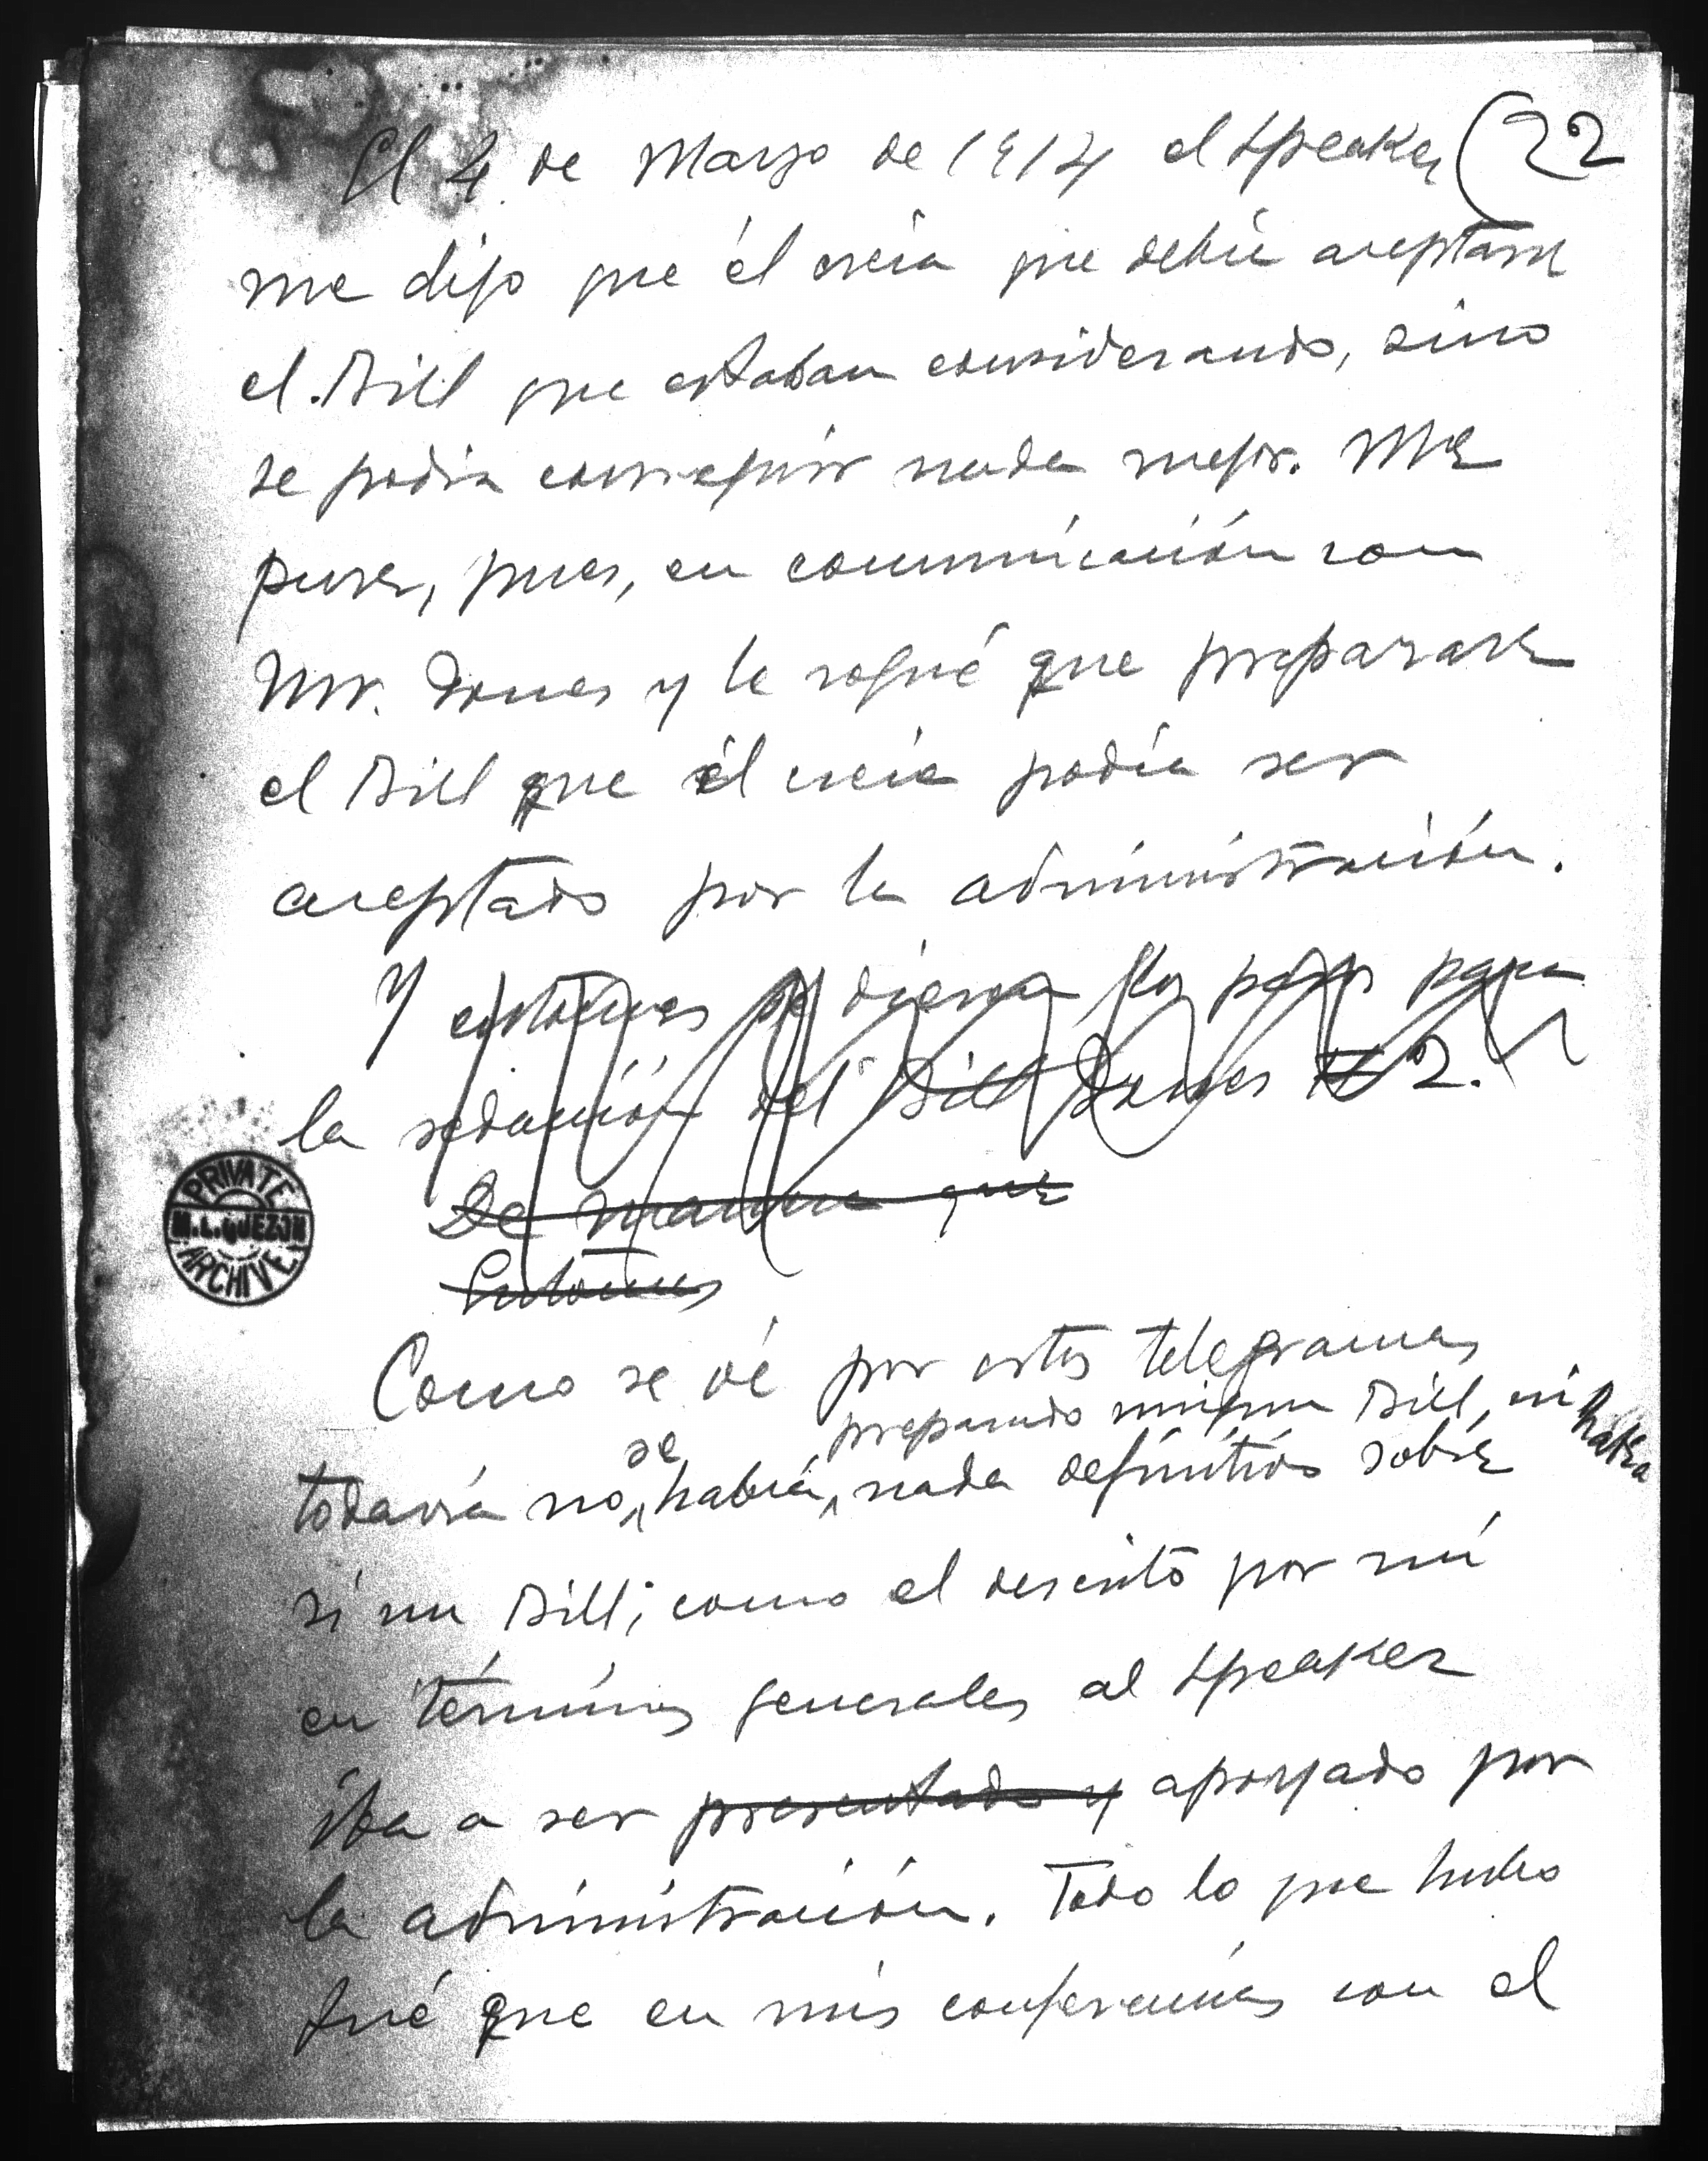 (22
El 4 de Marzo de 1914 el Speaker
me dijo que él creia que debia aceptarse
el Bill que estaban considerando, sino
se podia conseguir nada mejor. Me
puse, pues, en comunicación con
Mr. Jones y le rogué que preparase
el Bill que él creia podía ser
aceptado por la administración.
Y entonces se dieron los pasos para
la redacción del Bill Jones 2.
De manera que
Entonces
Como se vé por estos telegramas
preparado ningun Bill, ni habia
se
todavía no habia nada definitivo sobre
si un Bill, como el descrito por mí
en términos generales al Speaker
iba a ser presentado y apoyado por
la administración. Todo lo que hubo
fué que en mis conferencias con el
PRIVATE
M.L.QUEZON
ARCHIVE